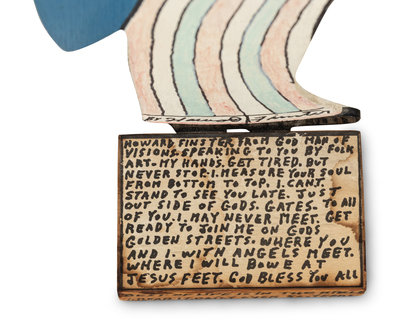 HOWARD FINSTER FROM GOD MAN OF
VISIONS. SPEAKING TO YOU BY FOLK
ART. MY HANDS. GET TIRED. BUT
NEVER STOP. I. MEASURE YOUR SOUL
FROM BOTTOM TO TOP. I. CANT.
STAND TO SEE YOU LATE. JUST
OUT SIDE OF GODS. GATES. TO ALL
OF YOU. I. MAY NEVER MEET. GET
READY TO JOIN ME ON GODS
GOLDEN STREETS. WHERE YOU
AND I. WITH ANGELS MEET.
WHERE I WILL BOWE AT
JESUS FEET. GOD BLESS YOU ALL